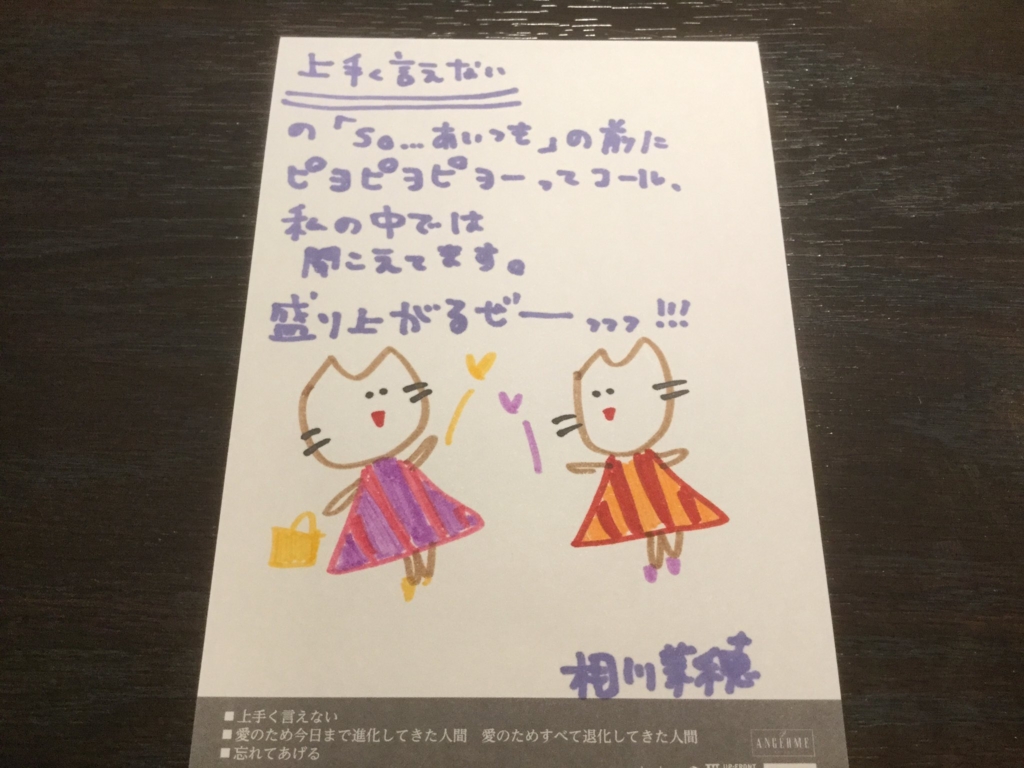 上手く言えない
の「So...あいつを」の前に
ピヨピヨピヨーってコール、
私の中では
聞こえてます。
盛り上がるぜーーっっっ!!!
相川茉穂
■上手く言えない
■愛のため今日まで進化してきた人間 愛のためすべて退化してきた人間
■忘れてあげる
ANGERME
UP-FRONT